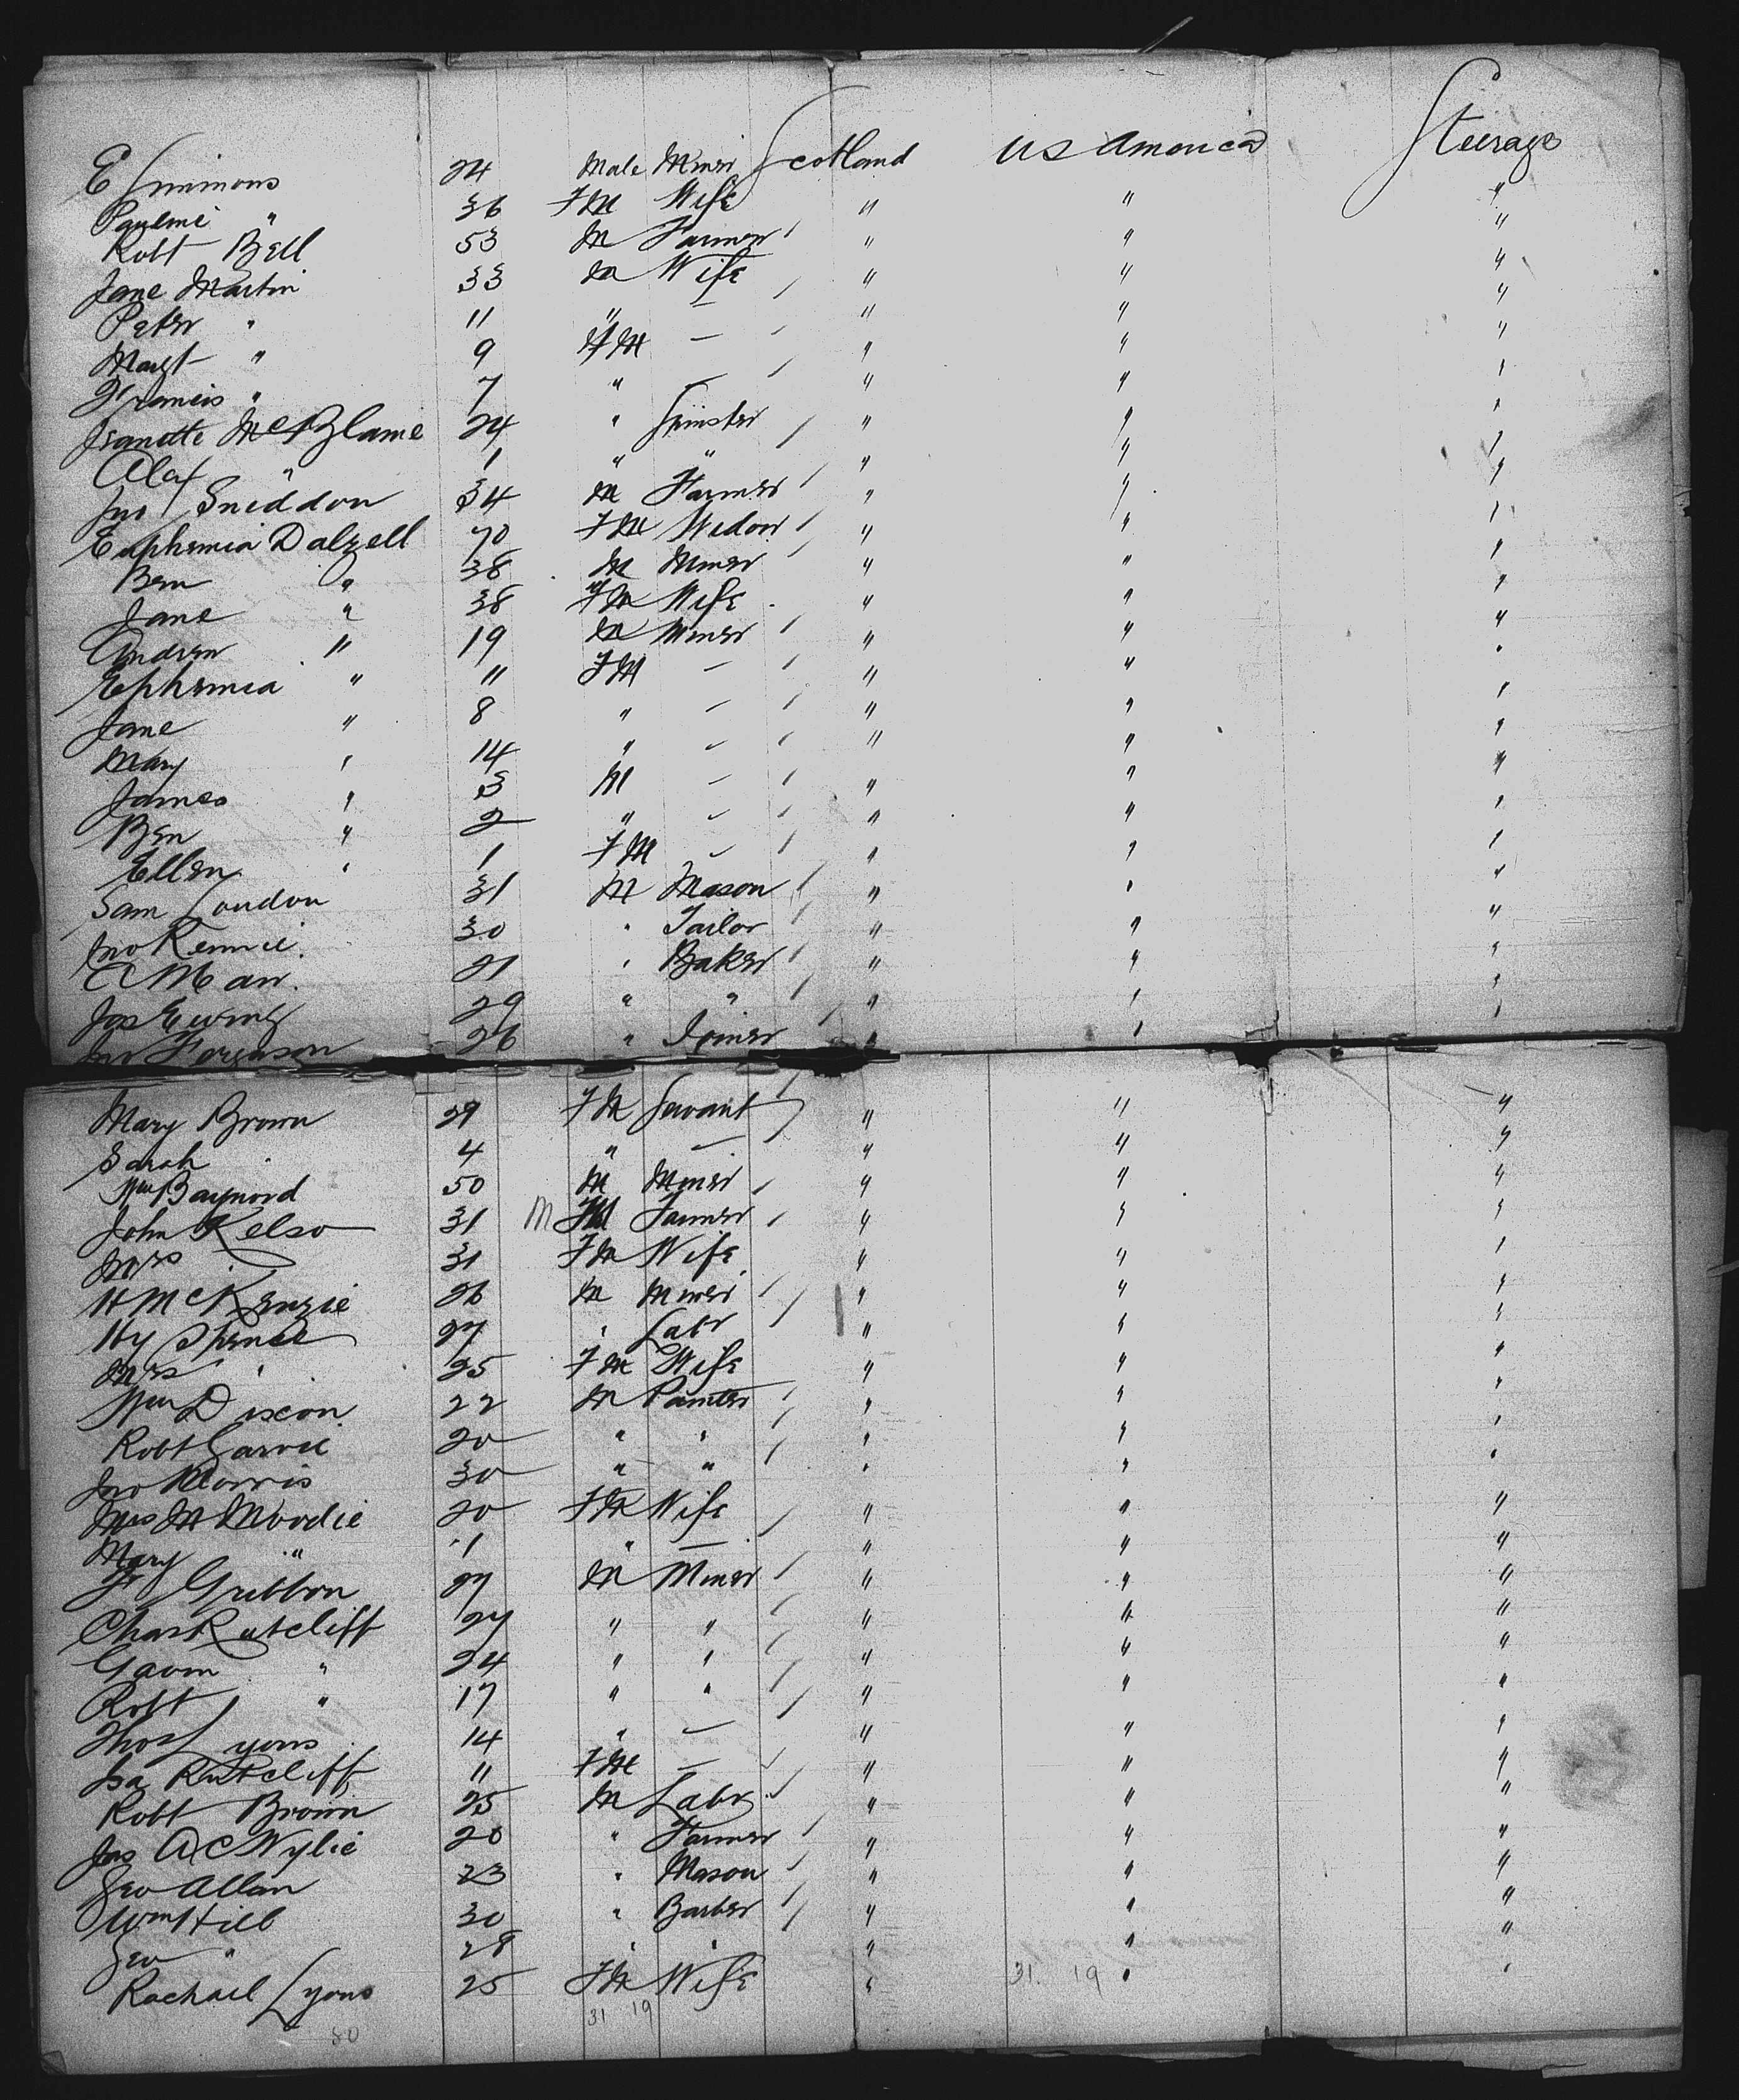 E Simmons 24 Male Miner Scotland US America Steerage
Pauline " 36 FM Wife " " "
Robt Bell 53 M Farmer " " "
Jane Martin 33 M Wife " " "
Peter " 11 " — " " "
Margt " 9 FM — " " "
Francis " 7 " — " " "
Jeanette McBlame 24 " Spinster " " "
Alex " 1 " " " " "
Jno Sneddon 34 M Farmer " " "
Euphemia Dalzell 70 FM Widow " " "
Ben " 38 M Miner " " "
Jane " 38 FM Wife " " "
Andrew " 19 M Miner " " "
Ephemia " 11 FM — " " "
Jane " 8 " — " " "
Mary " 14 " — " " "
James " 3 M — " " "
Ben " 2 " — " " "
Ellen " 1 FM — " " "
Sam Loudon 31 M Mason " " "
Jno Rennie 30 " Tailor " " "
A Marr 21 " Baker " " "
Jas Ewing 29 " " " " "
Jno Ferguson 26 " Joiner " " "
Mary Brown 29 FM Servant " " "
Sarah 4 " — " " "
Wm Baynord 50 M Miner " " "
John Kelso 31 M FM Farmer " " "
Mrs " 31 FM Wife " " "
H McKenzie 26 M Miner " " "
Hy Spence 27 " Labr " " "
Mrs " 25 FM Wife " " "
Wm Dixon 22 M Painter " " "
Robt Garvie 20 " " " " "
Jno Morris 30 " " " " "
Mrs M Moodie 20 FM Wife " " "
Mary " 1 " — " " "
Gribbon 27 M Miner " " "
Chas Ratcliff 27 " " " " "
Gavin " 24 " " " " "
Robt " 17 " " " " "
Thos Lyons 14 " — " " "
Isa Ratcliff 11 FM — " " "
Robt Brown 25 M Labr " " "
Jas A C Wylie 20 " Farmer " " "
Geo Allan 23 " Mason " " "
Wm Hill 30 " Barber " " "
Geo " 28 " " " " "
Rachael Lyons 25 FM Wife " " "
31 19 31. 19
50